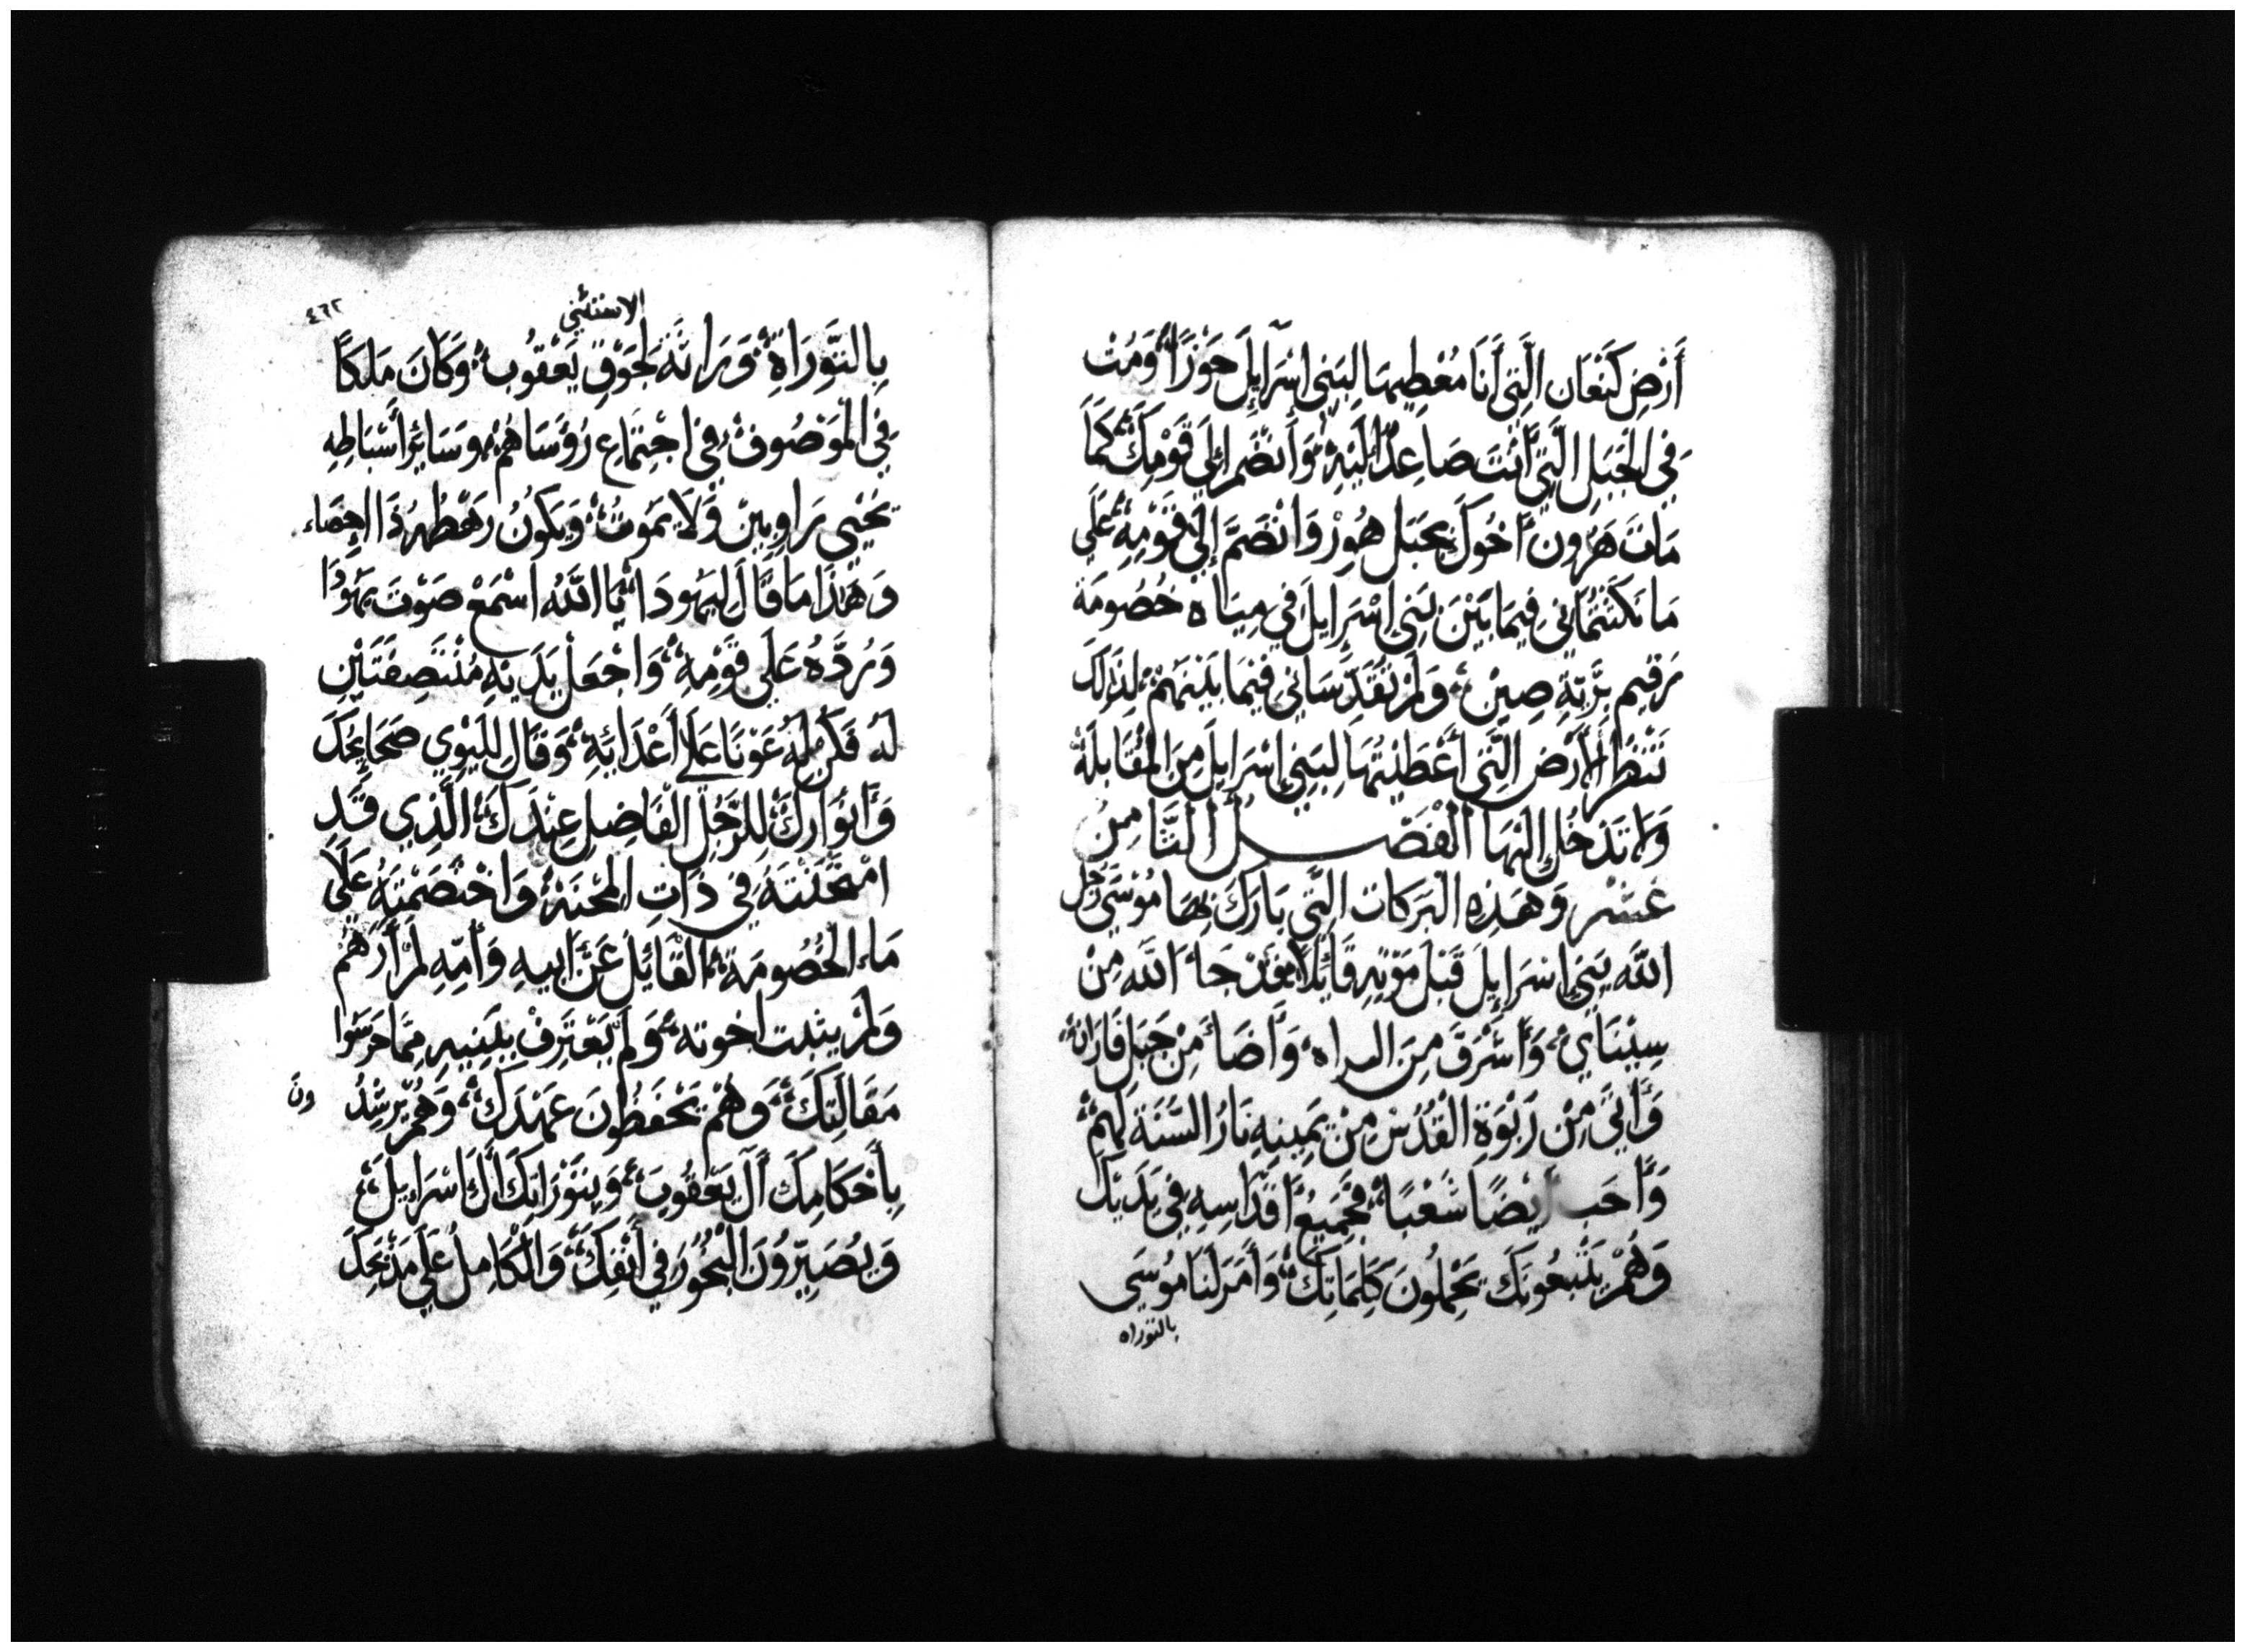 أَرْضِ كَنْعَان الَّتِي أَنَا مُعْطِيهَا لِبَنِي اسْرَايِلَ حَوْزًا وَمُتْ
فِي الْجَبَلِ الَّتِي أَنْتَ صَاعِدٌ إلَيْهِ وَأَنْضَمَّ إلَى قَوْمِكَ كَمَا
مَاتَ هَرُون أَخُوكَ بِجَبَلِ هُورْ وَانْضَمَّ إِلَى قَوْمِهِ عَلَى
مَا نَكَثْتُمَانِي فِيمَا بَيْنَ بَنِي اِسْرَايِلَ فِي مِيَاه خُصُومَة
رَقِيم بَرِّيَّةِ صِينْ وَلَمْ تُقَدِّسَانِي فِيمَا بَيْنَهُمْ لِذَالِكَ
تَنْظُرُ الأَرْض الَّتِي أَعْطَيْتُهَا لِبَنِي اِسْرَايِلَ مِنَ الْمُقَابَلَة
وَلَا تَدْخُل إِلَيْهَا الْفَصْـــلُ الثَّامِنُ
عَشَر وَهَذِهِ الْبَرَكَات الَّتِي بَارَكَ بِهَا مُوْسَى رَجُل
اللَّه بَنِي اِسْرَايِلَ قَبْلَ مَوْتِهِ قَائِلًا قَدْ جَاءَ اللَّه مِنْ
سِيْنَاي وَأَشْرَقَ مِنَ السراه وَأَضَاءَ مِنْ جَبَلِ فَارَان
وَأَتَى مِنْ رَبْوَةِ الْقُدُسِ مِنْ يَمِينِهِ نَارُ السُّنَّة لَهُمْ
وَأَحَب أَيْضًا شَعْبًا جَمِيعُ أَقْدَاسِهِ فِي يَدَيْكَ
وَهُمْ يَتْبَعُونَكَ يَحْمِلُونَ كَلِمَاتِكَ وَأَمَرَ لَنَا مُوسَى
بالتوراه
الاستثني
٤٦٢
بِالتَّوْرَاةِ وَرَاثَةً لِجَوْقِ يَعْقُوب وَكَانَ مَلِكًا
فِي الْمَوْصُوف فِي اجْتِمَاعِ رُؤَسَاهُمْ وَسَايِرُ أَسْبَاطِهِ
يَحْيَى رَاوبِين وَلَا يَمُوتُ وَيَكُونُ رَهْطُهُ ذَا احصاء
وَهَذَا مَا قَالَ لِيَهُودَا يَا اللَّهُ اسْمَعْ صَوْتَ يَهُودَا
وَرُدَّهُ عَلَى قَوْمِهِ وَاجْعَلْ يَدَيْهِ مُنْتَصِفَتَيْنِ
لَهُ فَكُنْ لَهُ عَوْنًا عَلَى أَعْدَائِهِ وَقَالَ لِلَيْوِي صَحَايِحَكَ
وَأَنْوَارَكَ لِلرَّجُلِ الْفَاضِلِ عِنْدَكَ الَّذِي قَدِ
امْتَحَنْتَهُ فِي ذَاتِ الْمِحْنَة وَاخْتَصَمْتَهُ عَلَى
مَاء الْخُصُومَة الْقَائِلَ عَنْ أَبِيهِ وَأُمِّهِ لَمْ أَرَهُمْ
وَلَمْ يثبت اخوته وَلَمْ يَعْتَرِفْ بِبَنِيهِ مِمَّا حَرَسُوا
مَقَالَتَكَ وَهُمْ يَحْفَظُونَ عَهْدَكَ وَهُمْ يُرْشِدُ ونَ
بِأَحْكَامِكَ آلَ يَعْقُوبَ وَبِتَوْرَاتِكَ آلَ اسْرَايِلَ
وَيُصَيِّرُونَ الْبُخُورَ فِي أَنْفِكَ وَالْكَامِلُ عَلَى مَذْبَحِكَ